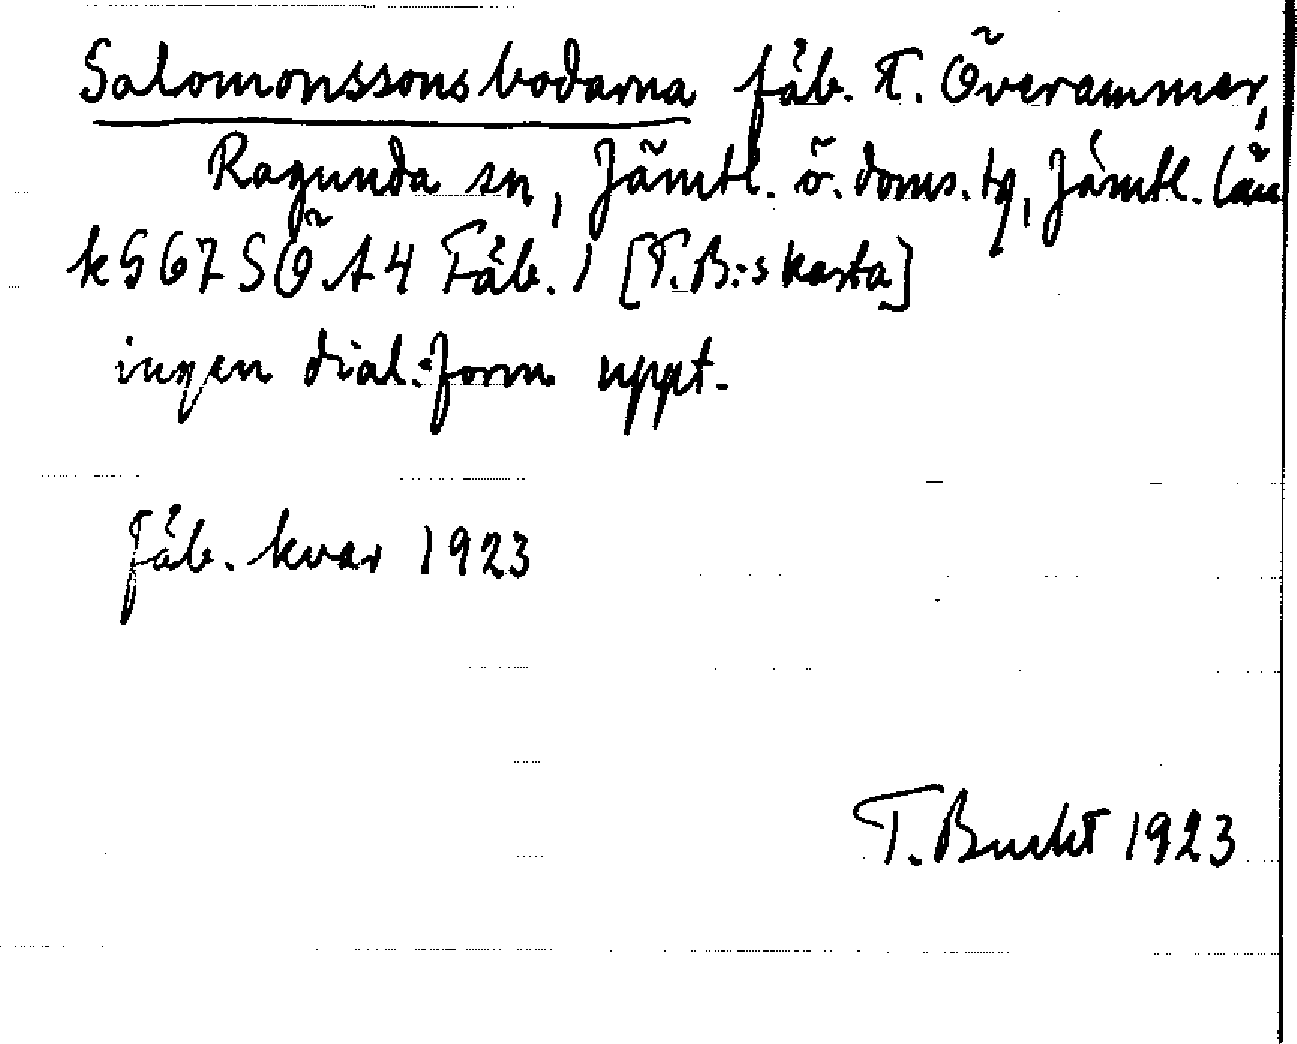 Salomonssonsbodarna fäb. t. Överammer,
Ragunda sn, Jämtl. ö. doms. tg, Jämtl. län
k G 67 SÖ A 4 Fäb. 1 [T.B:s karta]
ingen dial.-form uppt.
Fäb. kvar 1923
T. Bucht 1923